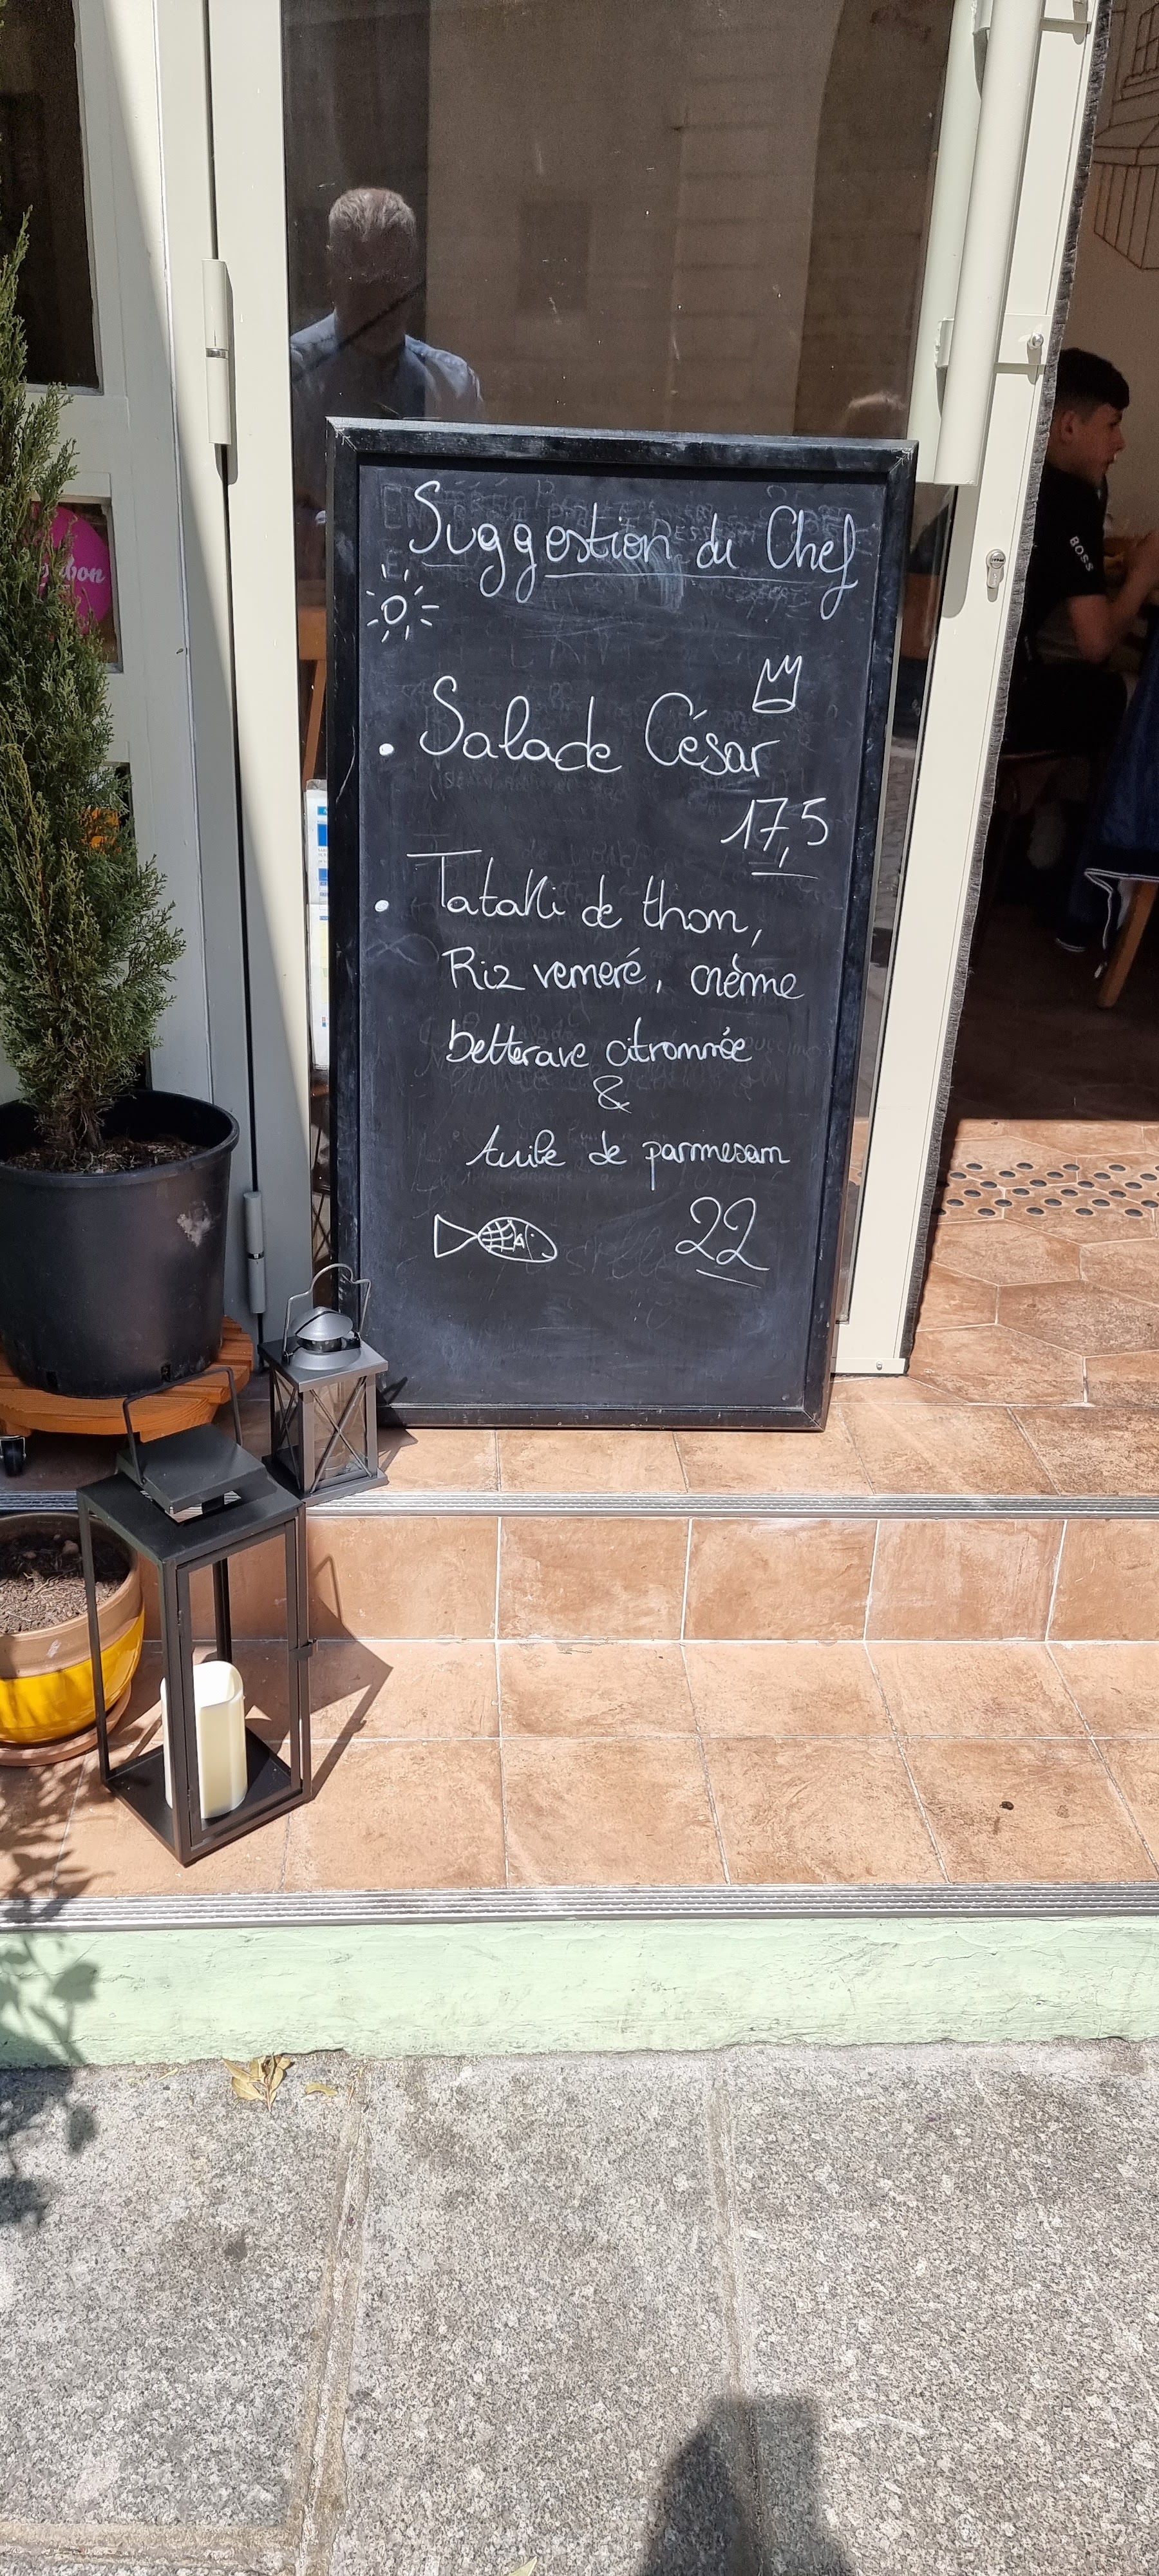 Suggestion du Chef
• Salade César
17,5
• Tataki de thon,
Riz veneré, crème
betterave citronnée
&
tuile de parmesan
22
BOSS